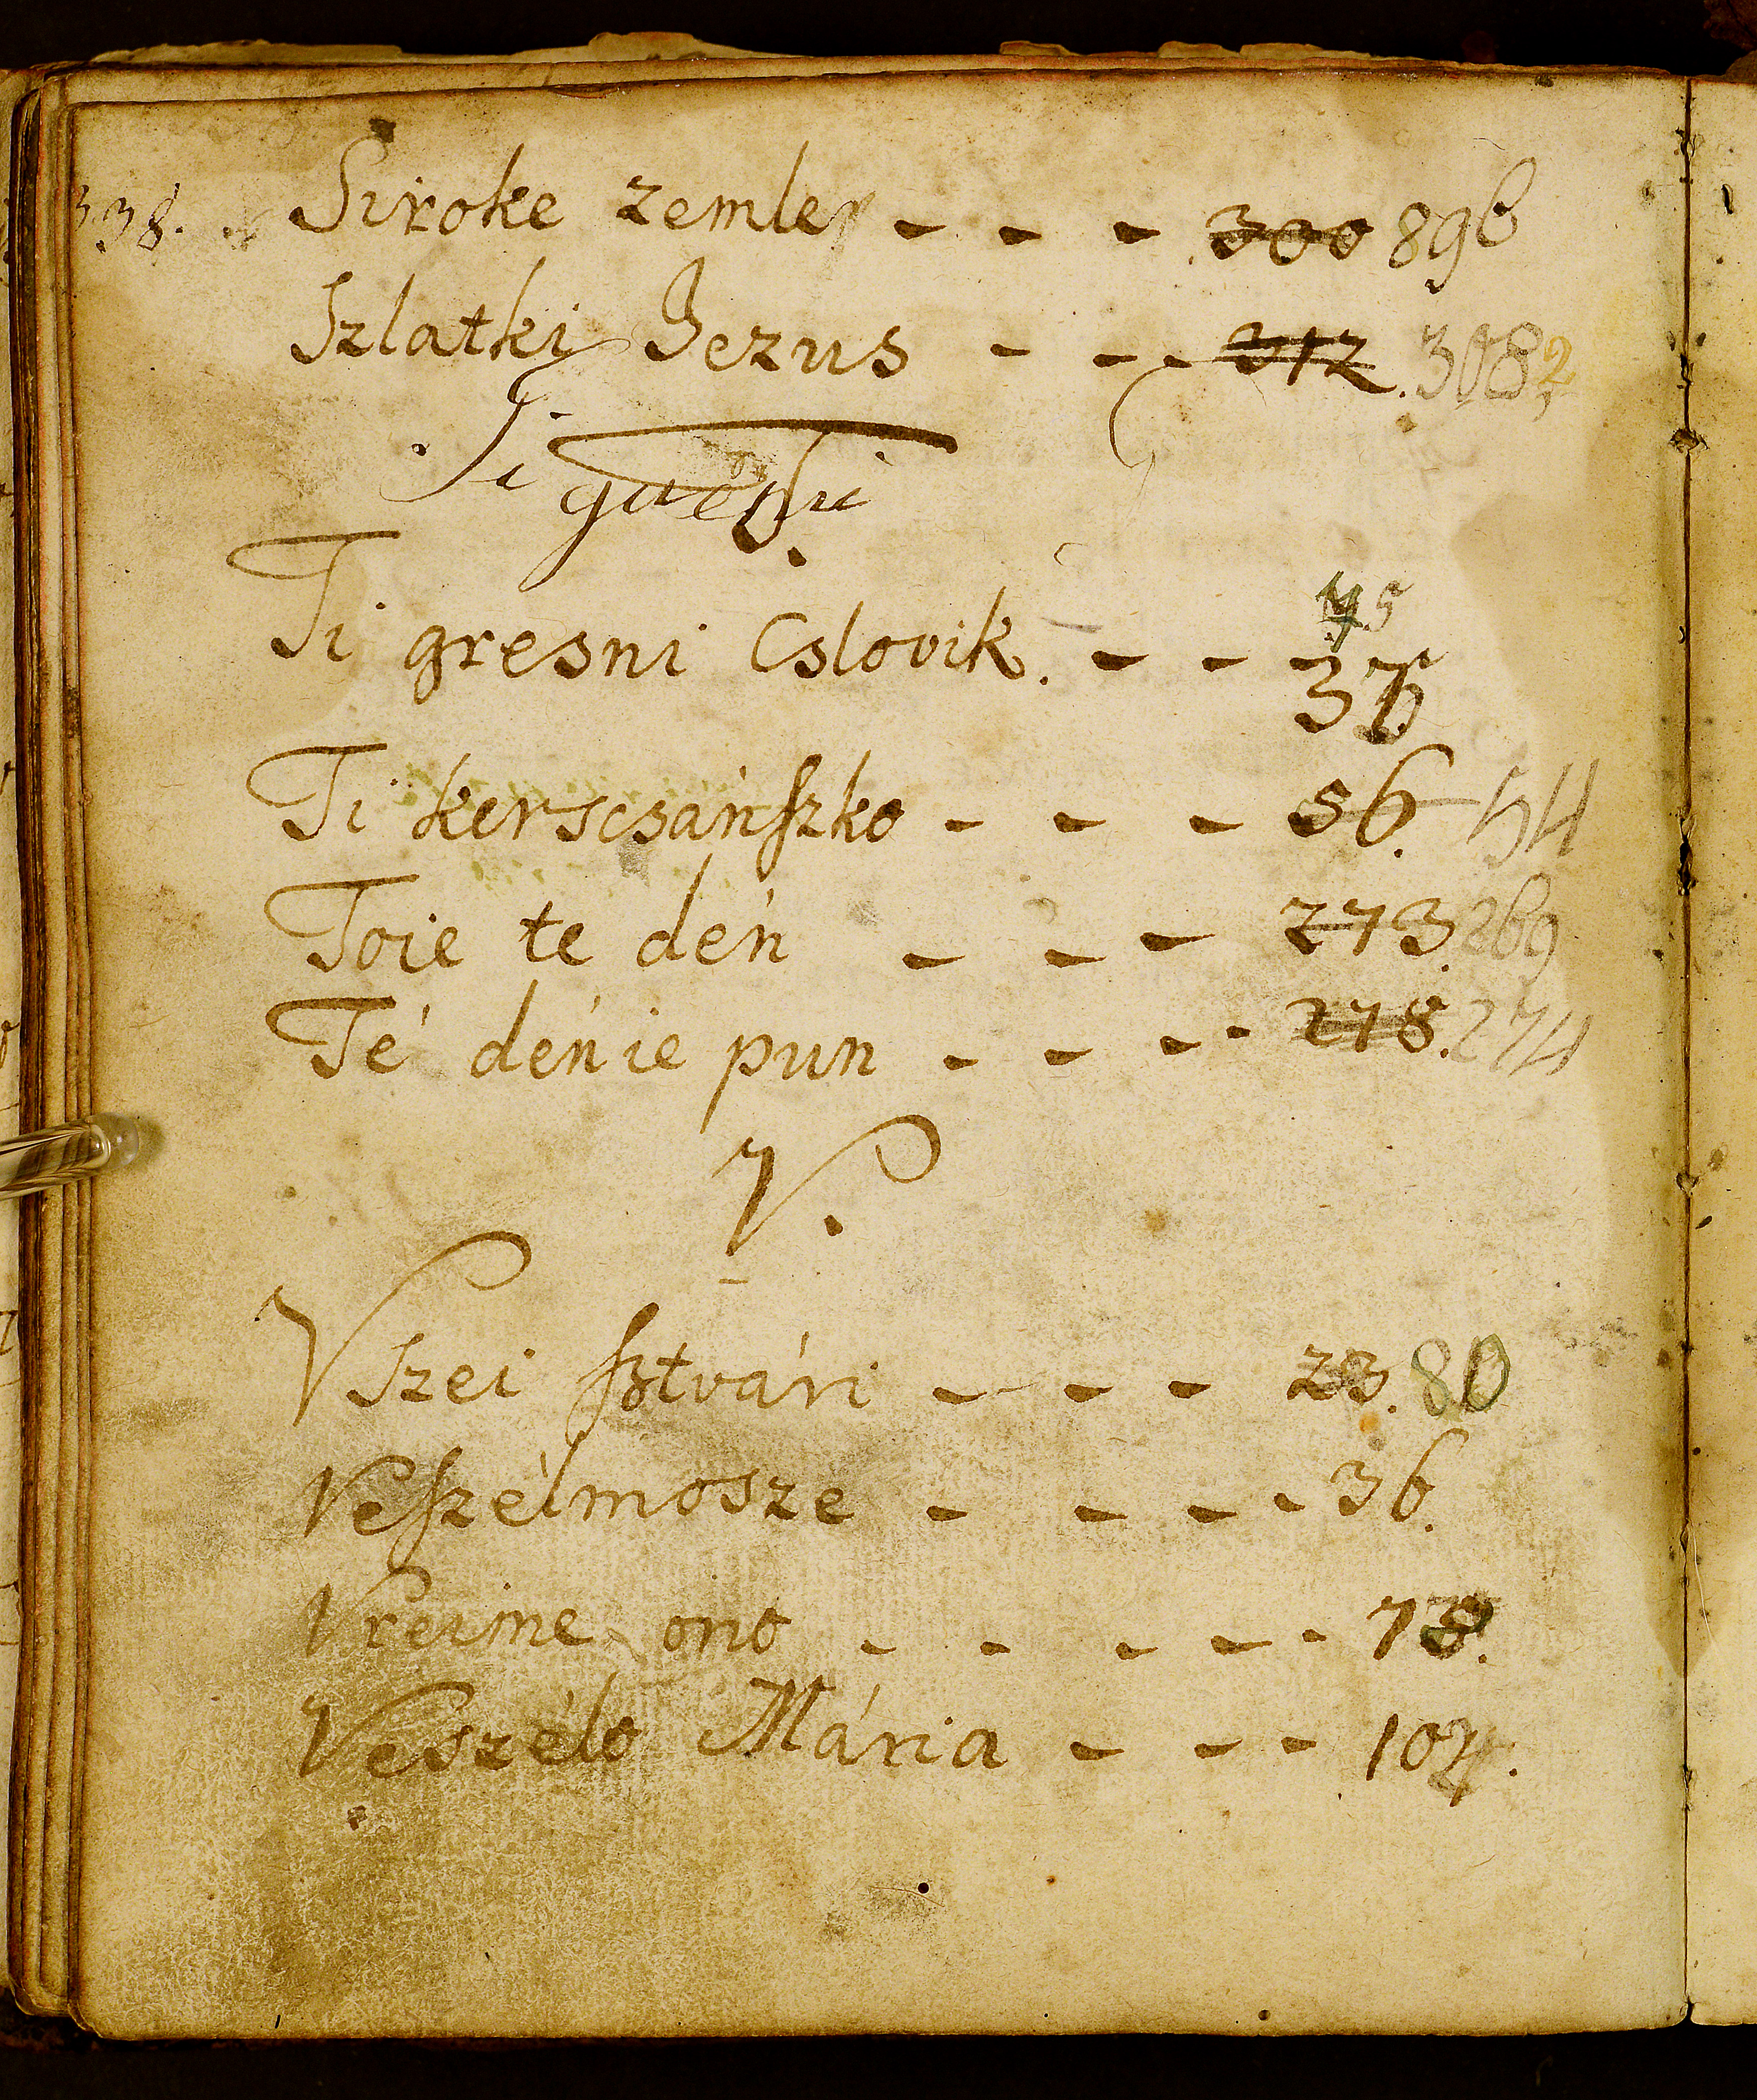 338. Siroke zemle - - - 300 896
Szlatki Jezus - - - 312. 308
Ti
T.
Ti gresni Cslovik. - - 37
45
Ti kerscsánſzko - - - 56. 54
Toie te dén - - - 273. 269
Té dénie pun - - - - 278. 274
V.
VSzei ſztvári - - - 23. 80
Veſzélmosze - - - - 36.
Vreime ono - - - - - 78.
Veszélo Mária - - - 104.